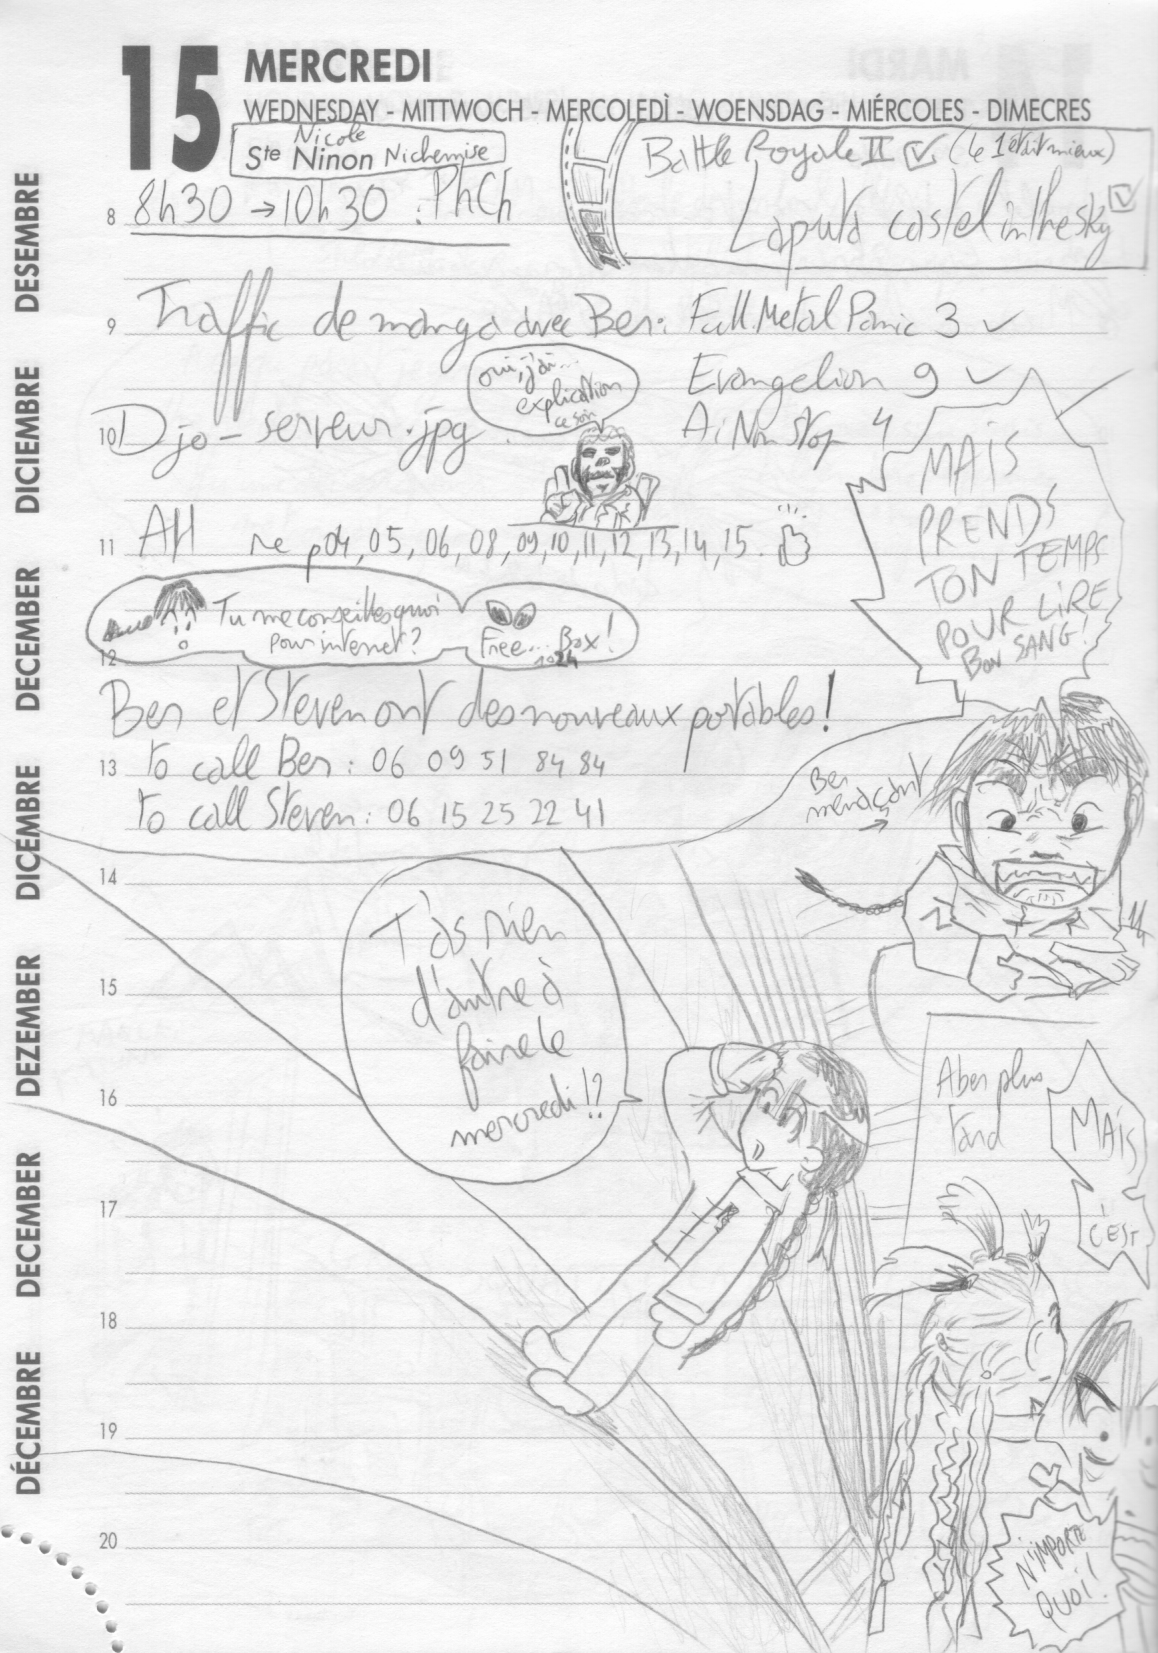 15 MERCREDI
WEDNESDAY - MITTWOCH - MERCOLEDÌ - WOENSDAG - MIÉRCOLES - DIMECRES
Nicole
Ste Ninon Nichemise
Battle Royale II (le 1 était mieux)
Laputa castel in the sky
8 8h30 → 10h30 : PhCh
9 Traffic de manga avec Ben : Full Metal Panic 3 ✓
Evangelion 9 ✓
Ai Non Stop 4
oui, j'ai...
explication
ce soir
10 Djo-serveur.jpg
MAIS
PRENDS
TON TEMPS
POUR LIRE
BON SANG!
11 AH ne p04, 05, 06, 08, 09, 10, 11, 12, 13, 14, 15.
Tu me conseilles quoi
pour internet?
Free... Box!
1024
12
Ben et Steven ont des nouveaux portables!
13 to call Ben : 06 09 51 84 84
to call Steven : 06 15 25 22 41
Ben
menaçant
→
14
T'as rien
d'autre à
faire le
mercredi!?
15
16
Aben plus
tard
MAIS
C'EST
17
18
19
20
N'IMPORTE
QUOI!
DÉCEMBRE DECEMBER DEZEMBER DICEMBRE DECEMBER DICIEMBRE DESEMBRE